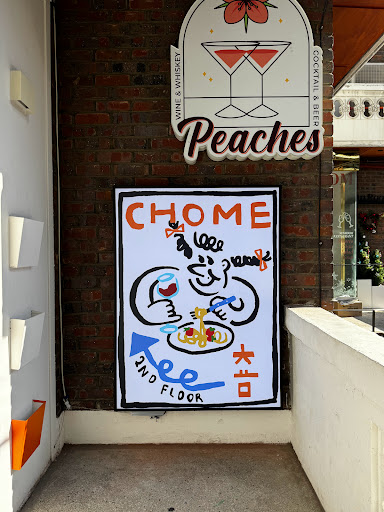 WINE & WHISKEY
COCKTAIL & BEER
Peaches
CHOME
촘
2ND FLOOR